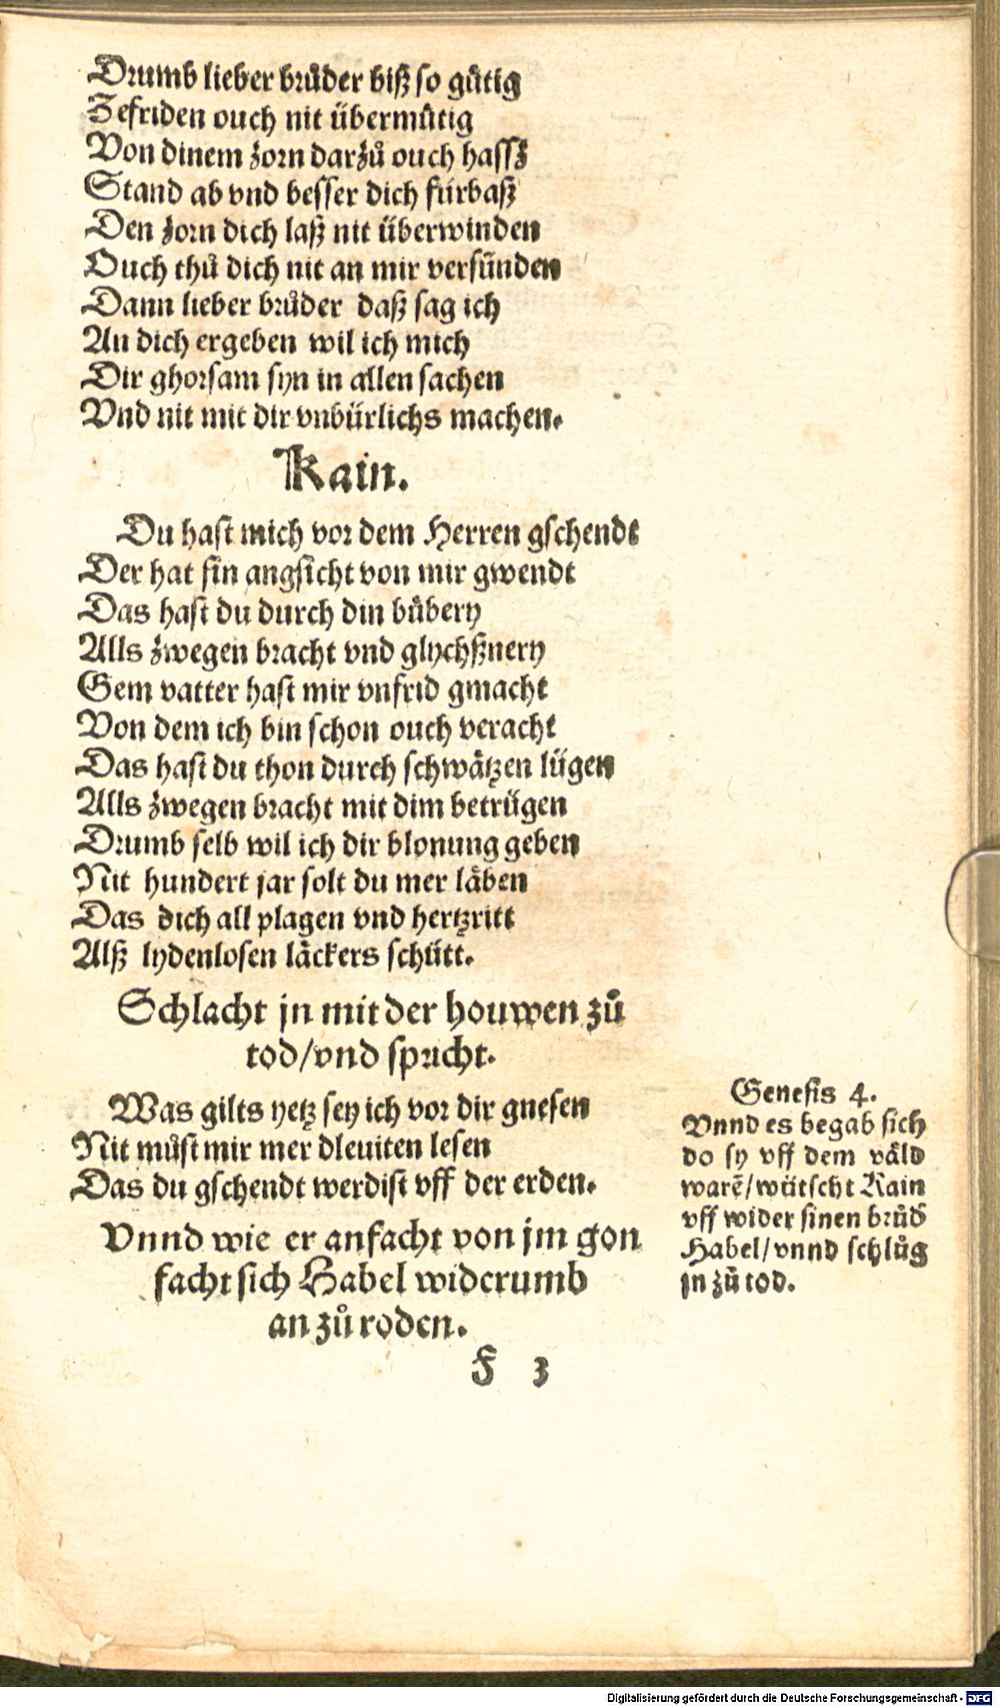 Drumb lieber brůder biß so gůtig
Zefriden ouch nit übermůtig
Von dinem zorn darzů ouch hassz
Stand ab vnd besser dich fürbaß
Den zorn dich laß nit überwinden
Ouch thů dich nit an mir versünden
Dann lieber brůder daß sag ich
An dich ergeben wil ich mich
Dir ghorsam syn in allen sachen
Vnd nit mit dir vnbürlichs machen.
Kain.
Du hast mich vor dem Herren gschendt
Der hat sin angsicht von mir gwendt
Das hast du durch din bůbery
Alls zwegen bracht vnd glychßnery
Gem vatter hast mir vnfrid gmacht
Von dem ich bin schon ouch veracht
Das hast du thon durch schwätzen lügen
Alls zwegen bracht mit dim betrügen
Drumb selb wil ich dir blonung geben
Nit hundert jar solt du mer läben
Das dich all plagen vnd hertzritt
Alß lydenlosen läckers schütt.
Schlacht jn mit der houwen zů
tod/vnd spricht.
Was gilts yetz sey ich vor dir gnesen
Nit můst mir mer dleuiten lesen
Das du gschendt werdist vff der erden.
Vnnd wie er anfacht von jm gon
facht sich Habel widerumb
an zů roden.
F 3
Genesis 4.
Vnnd es begab sich
do sy vff dem väld
warẽ/wütscht Kain
vff wider sinen brůd
Habel/vnnd schlůg
jn zů tod.
Digitalisierung gefördert durch die Deutsche Forschungsgemeinschaft - DFG